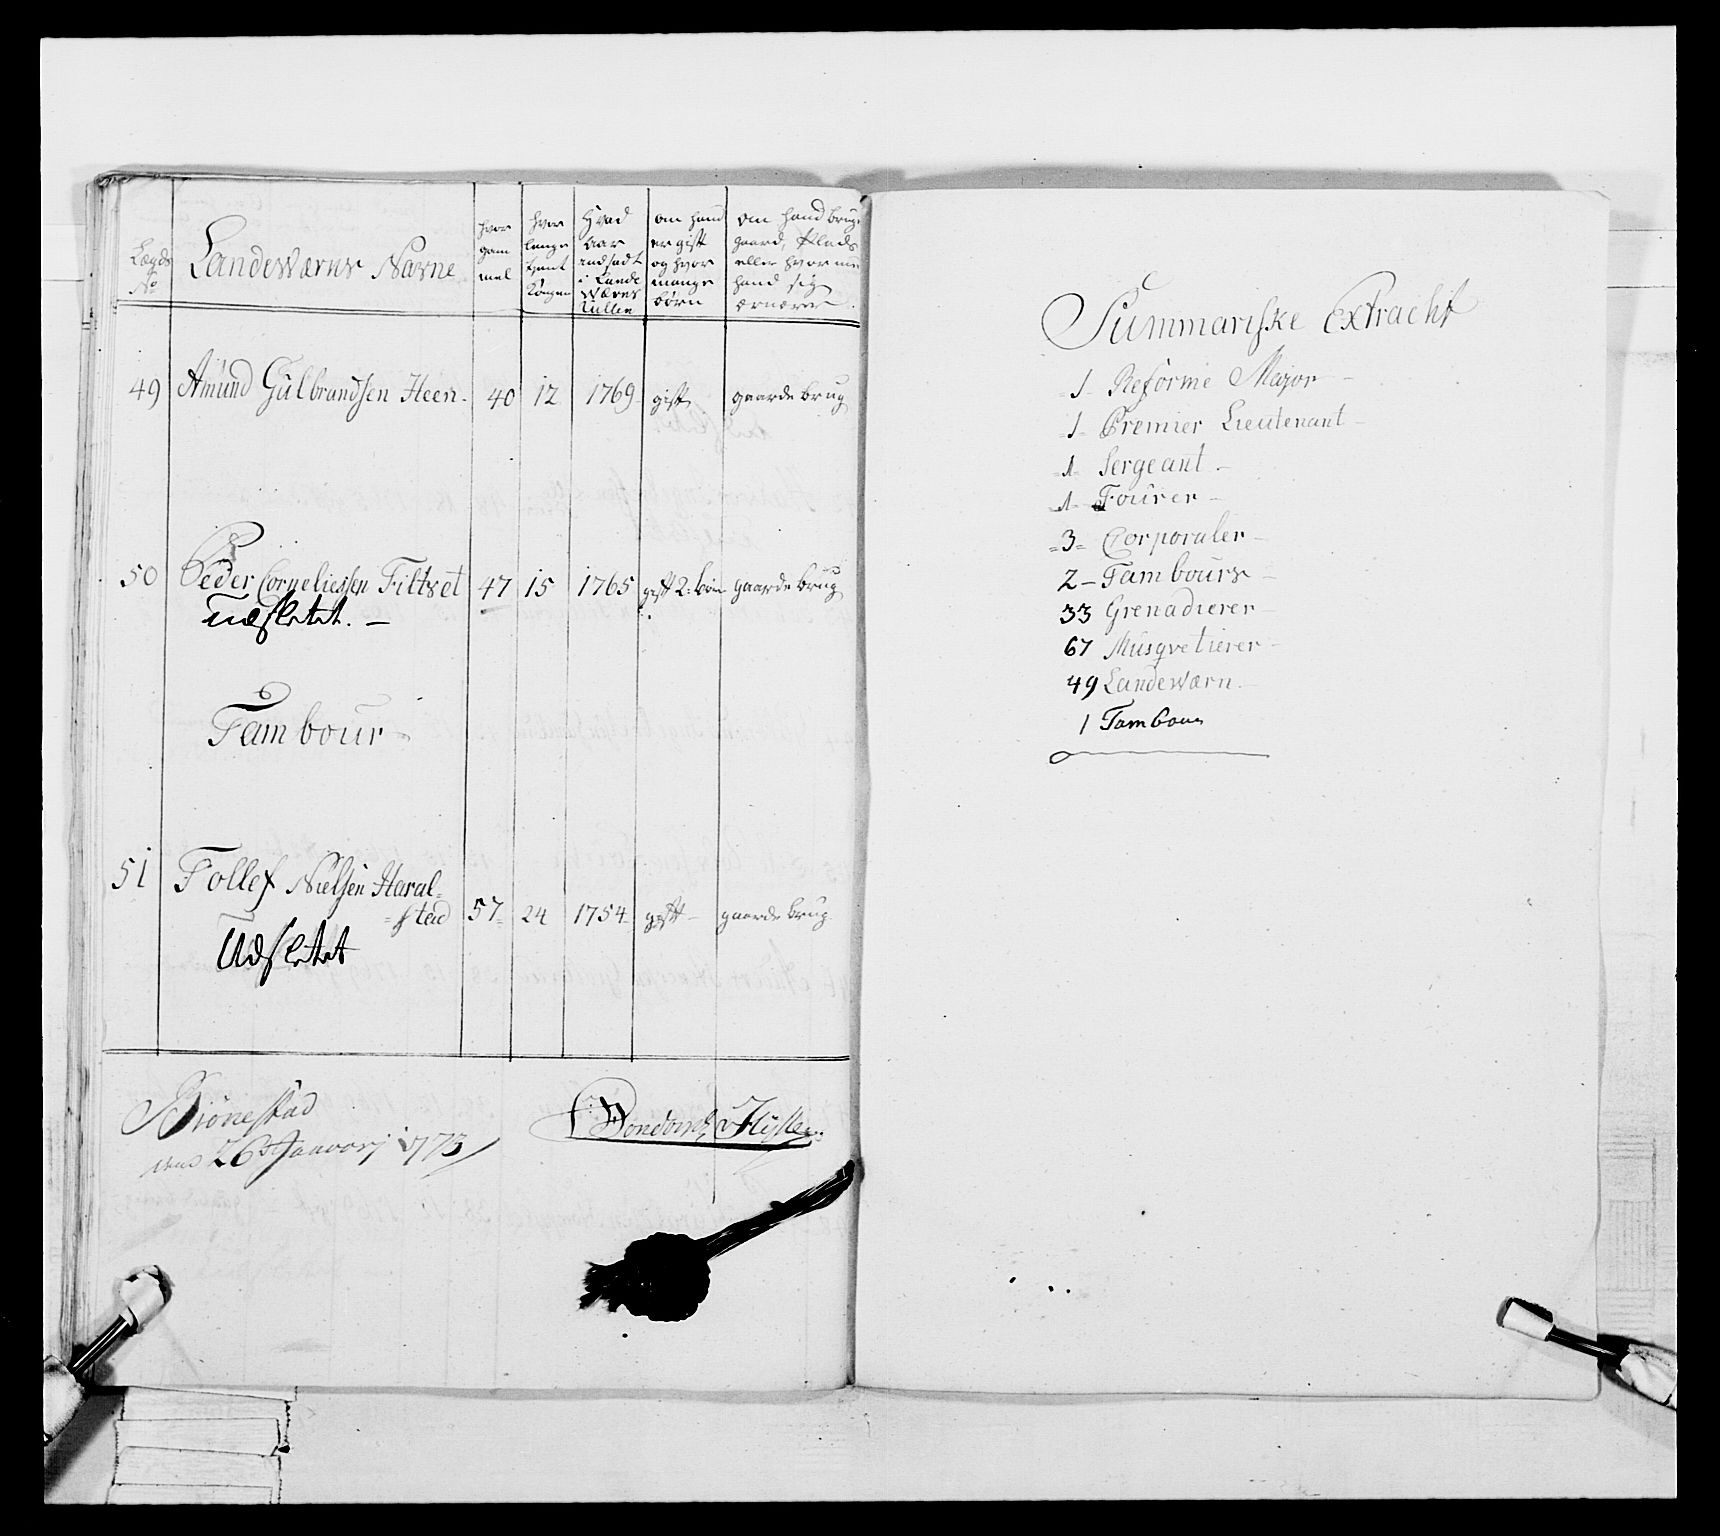 Lægds No
Landeværns Navne
hvor gam mel
hvor lenge tient Kongen
Hvad Aar indsadt i Lande Værns Rullen
om hand er gift og hvor mange børn
om hand bruger gaard, Plads eller hvor med hand sig ernærer
49 Amund Gulbrandsen Heen. 40 12 1769 gift gaarde brug
50 Peder Corneliessen Filtvet 47 15 1765 gift 2: børn gaarde brug
Udslettet. —
Tambour
51 Tollef Nielsen Haral=
=stad 57 24 1754 gift — gaarde brug
Udslettet
Biönestad
den 26de Januarj 1773
Summariske Extracht
1 Reforme Major —
1 Premier Lieutenant —
1 Sergeant —
1 Fourer —
3 Corporaler —
2 — Tambours —
33 Grenadierer —
67 Musqvetierer —
49 Landeværn. —
1 Tambour